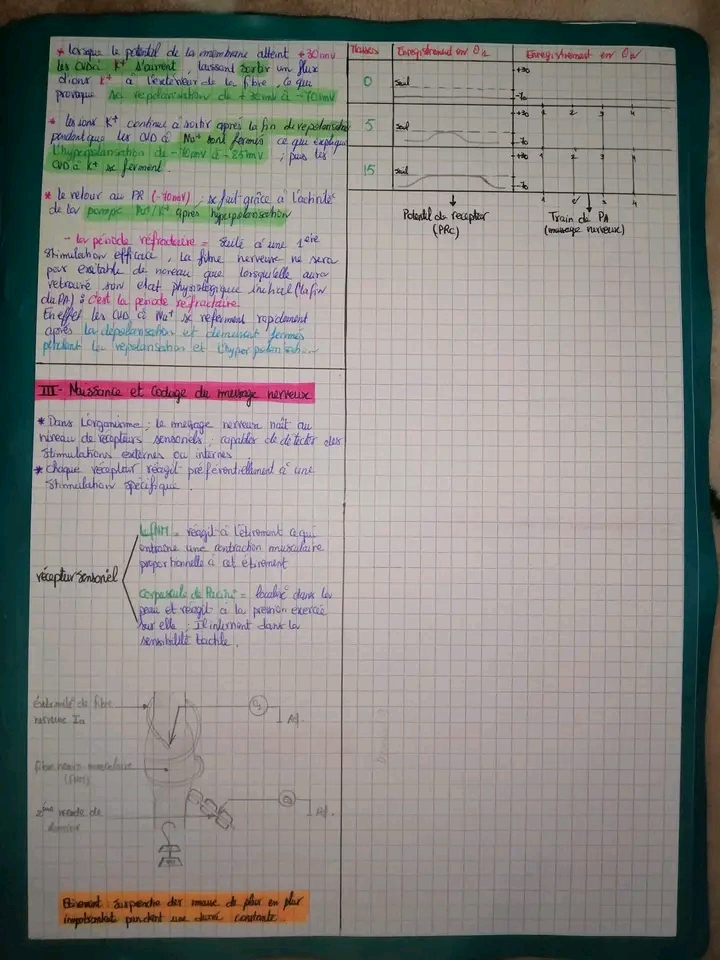 * Lorsque le potentiel de la membrane atteint +30mV
les CVDà K+ s'ouvrent, laissant sortir un flux
d'ions K+ à l'extérieur de la fibre, ce qui
provoque sa repolarisation de +30mV à -70mV
* Les ions K+ continue à sortir après la fin de repolarisation
pendant que les CVD à Na+ sont fermés ce que explique
l'hyperpolarisation de -70mV à -85mV ; puis les
CVD à K+ se ferment.
* Le retour au PR (-70mV) se fait grâce à l'activité
de la pompe Na+/K+ après hyperpolarisation
- la période réfractaire = suite à une 1ère
stimulation efficace, la fibre nerveuse ne sera
pas excitable de nouveau que lorsqu'elle aura
retrouvé son etat physiologique initial (la fin
du PA) : c'est la période réfractaire.
En effet les CVD à Na+ se referment rapidement
après la dépolarisation et demeurent fermés
pendant la repolarisation et l'hyperpolarisat...
III- Naissance et Codage du message nerveux
* Dans l'organisme, le message nerveux naît au
niveau de récepteurs sensoriels, capables de détecter des
stimulations externes ou internes
* chaque récepteur réagit préférentiellement à une
stimulation spécifique.
récepteur sensoriel
Le FNM = réagit à l'étirement ce qui
entraine une contraction musculaire
proportionnelle à cet étirement
Corpuscule de Pacini = localisé dans la
peau et réagit à la pression exercée
sur elle ; Il intervient dans la
sensibilité tactile.
éxtrémité de fibre
nerveuse Ia
O2
fibre neuro musculaire
(FNM)
2ème racine de
étirement : suspendre des masses de plus en plus
importantes pendant une durée constante.
Masses
Enregistrement en O1
Enregistrement en O2
0
seuil
+30
-70
5
seuil
+30
1 2 3 4
-70
15
seuil
+30
1 2 3
-70
1 2 3 4
Potentiel de récepteur
(PRc)
Train de PA
(message nerveux)